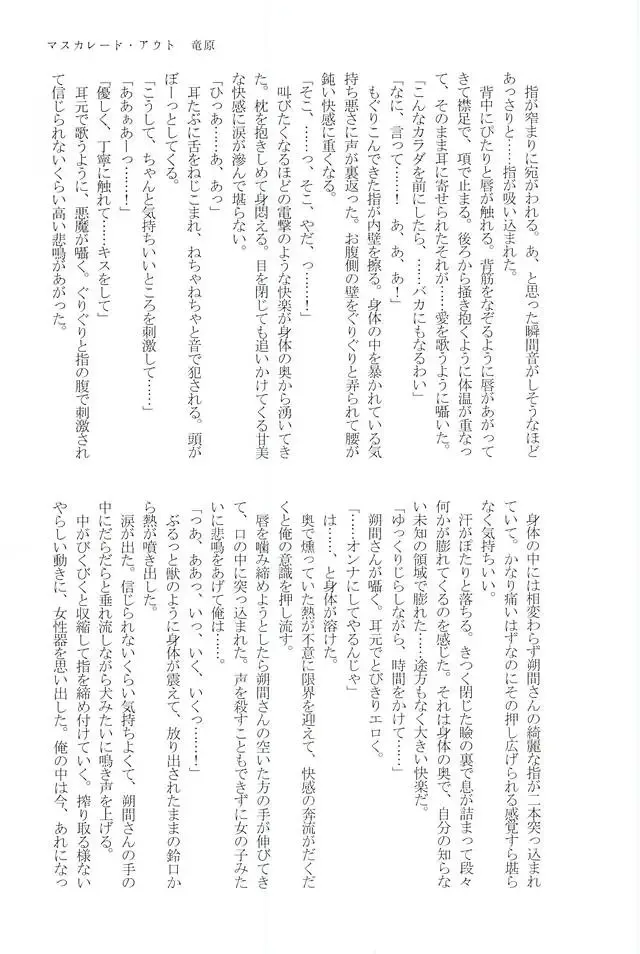 マスカレード・アウト　竜原
指が窄まりに宛がわれる。あ、と思った瞬間音がしそうなほど
あっさりと……指が吸い込まれた。
背中にぴたりと唇が触れる。背筋をなぞるように唇があがって
きて襟足で、項で止まる。後ろから掻き抱くように体温が重なっ
て、そのまま耳に寄せられたそれが……愛を歌うように囁いた。
「こんなカラダを前にしたら、……バカにもなるわい」
「なに、言って……！　あ、あ、あ！」
もぐりこんできた指が内壁を擦る。身体の中を暴かれている気
持ち悪さに声が裏返った。お腹側の壁をぐりぐりと弄られて腰が
鈍い快感に重くなる。
「そこ、……っ、そこ、やだ、っ……！」
叫びたくなるほどの電撃のような快楽が身体の奥から湧いてき
た。枕を抱きしめて身悶える。目を閉じても追いかけてくる甘美
な快感に涙が滲んで堪らない。
「ひっぁ……あ、あっ」
耳たぶに舌をねじこまれ、ねちゃねちゃと音で犯される。頭が
ぼーっとしてくる。
「こうして、ちゃんと気持ちいいところを刺激して……」
「あぁぁあーっ……！」
「優しく、丁寧に触れて……キスをして」
耳元で歌うように、悪魔が囁く。ぐりぐりと指の腹で刺激され
て信じられないくらい高い悲鳴があがった。
身体の中には相変わらず朔間さんの綺麗な指が二本突っ込まれ
ていて。かなり痛いはずなのにその押し広げられる感覚すら堪ら
なく気持ちいい。
汗がぽたりと落ちる。きつく閉じた瞼の裏で息が詰まって段々
何かが膨れてくるのを感じた。それは身体の奥で、自分の知らな
い未知の領域で膨れた……途方もなく大きい快楽だ。
「ゆっくりじらしながら、時間をかけて……」
朔間さんが囁く。耳元でとびきりエロく。
「……オンナにしてやるんじゃ」
は……、と身体が溶けた。
奥で燻っていた熱が不意に限界を迎えて、快感の奔流がだくだ
くと俺の意識を押し流す。
唇を噛み締めようとしたら朔間さんの空いた方の手が伸びてき
て、口の中に突っ込まれた。声を殺すこともできずに女の子みた
いに悲鳴をあげて俺は……。
「っあ、ああっ、いっ、いく、いくっ……！」
ぶるっと獣のように身体が震えて、放り出されたままの鈴口か
ら熱が噴き出した。
涙が出た。信じられないくらい気持ちよくて、朔間さんの手の
中にだらだらと垂れ流しながら犬みたいに鳴き声を上げる。
中がびくびくと収縮して指を締め付けていく。搾り取る様ない
やらしい動きに、女性器を思い出した。俺の中は今、あれになっ